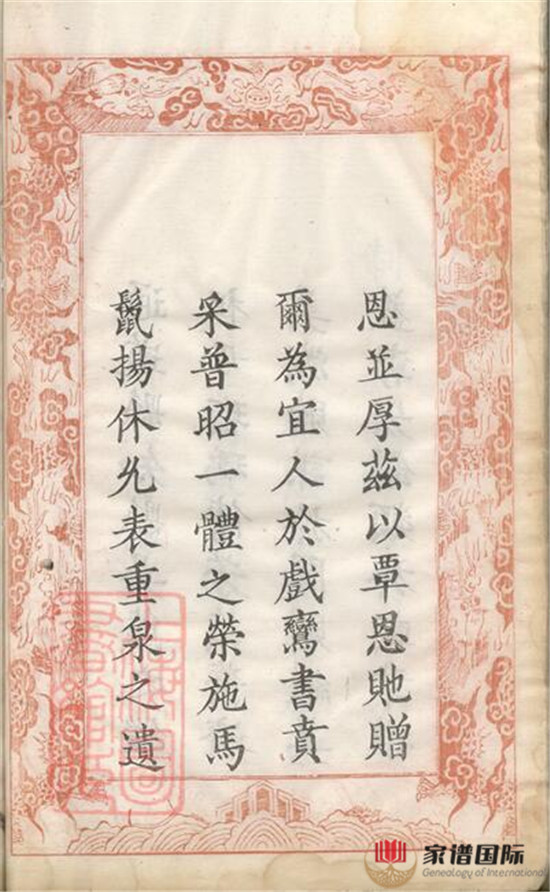 恩並厚茲以覃恩貤贈
爾為宜人於戲鸞書賁
采普昭一體之榮施馬
鬣揚休允表重泉之遺
家谱国际
Genealogy of International